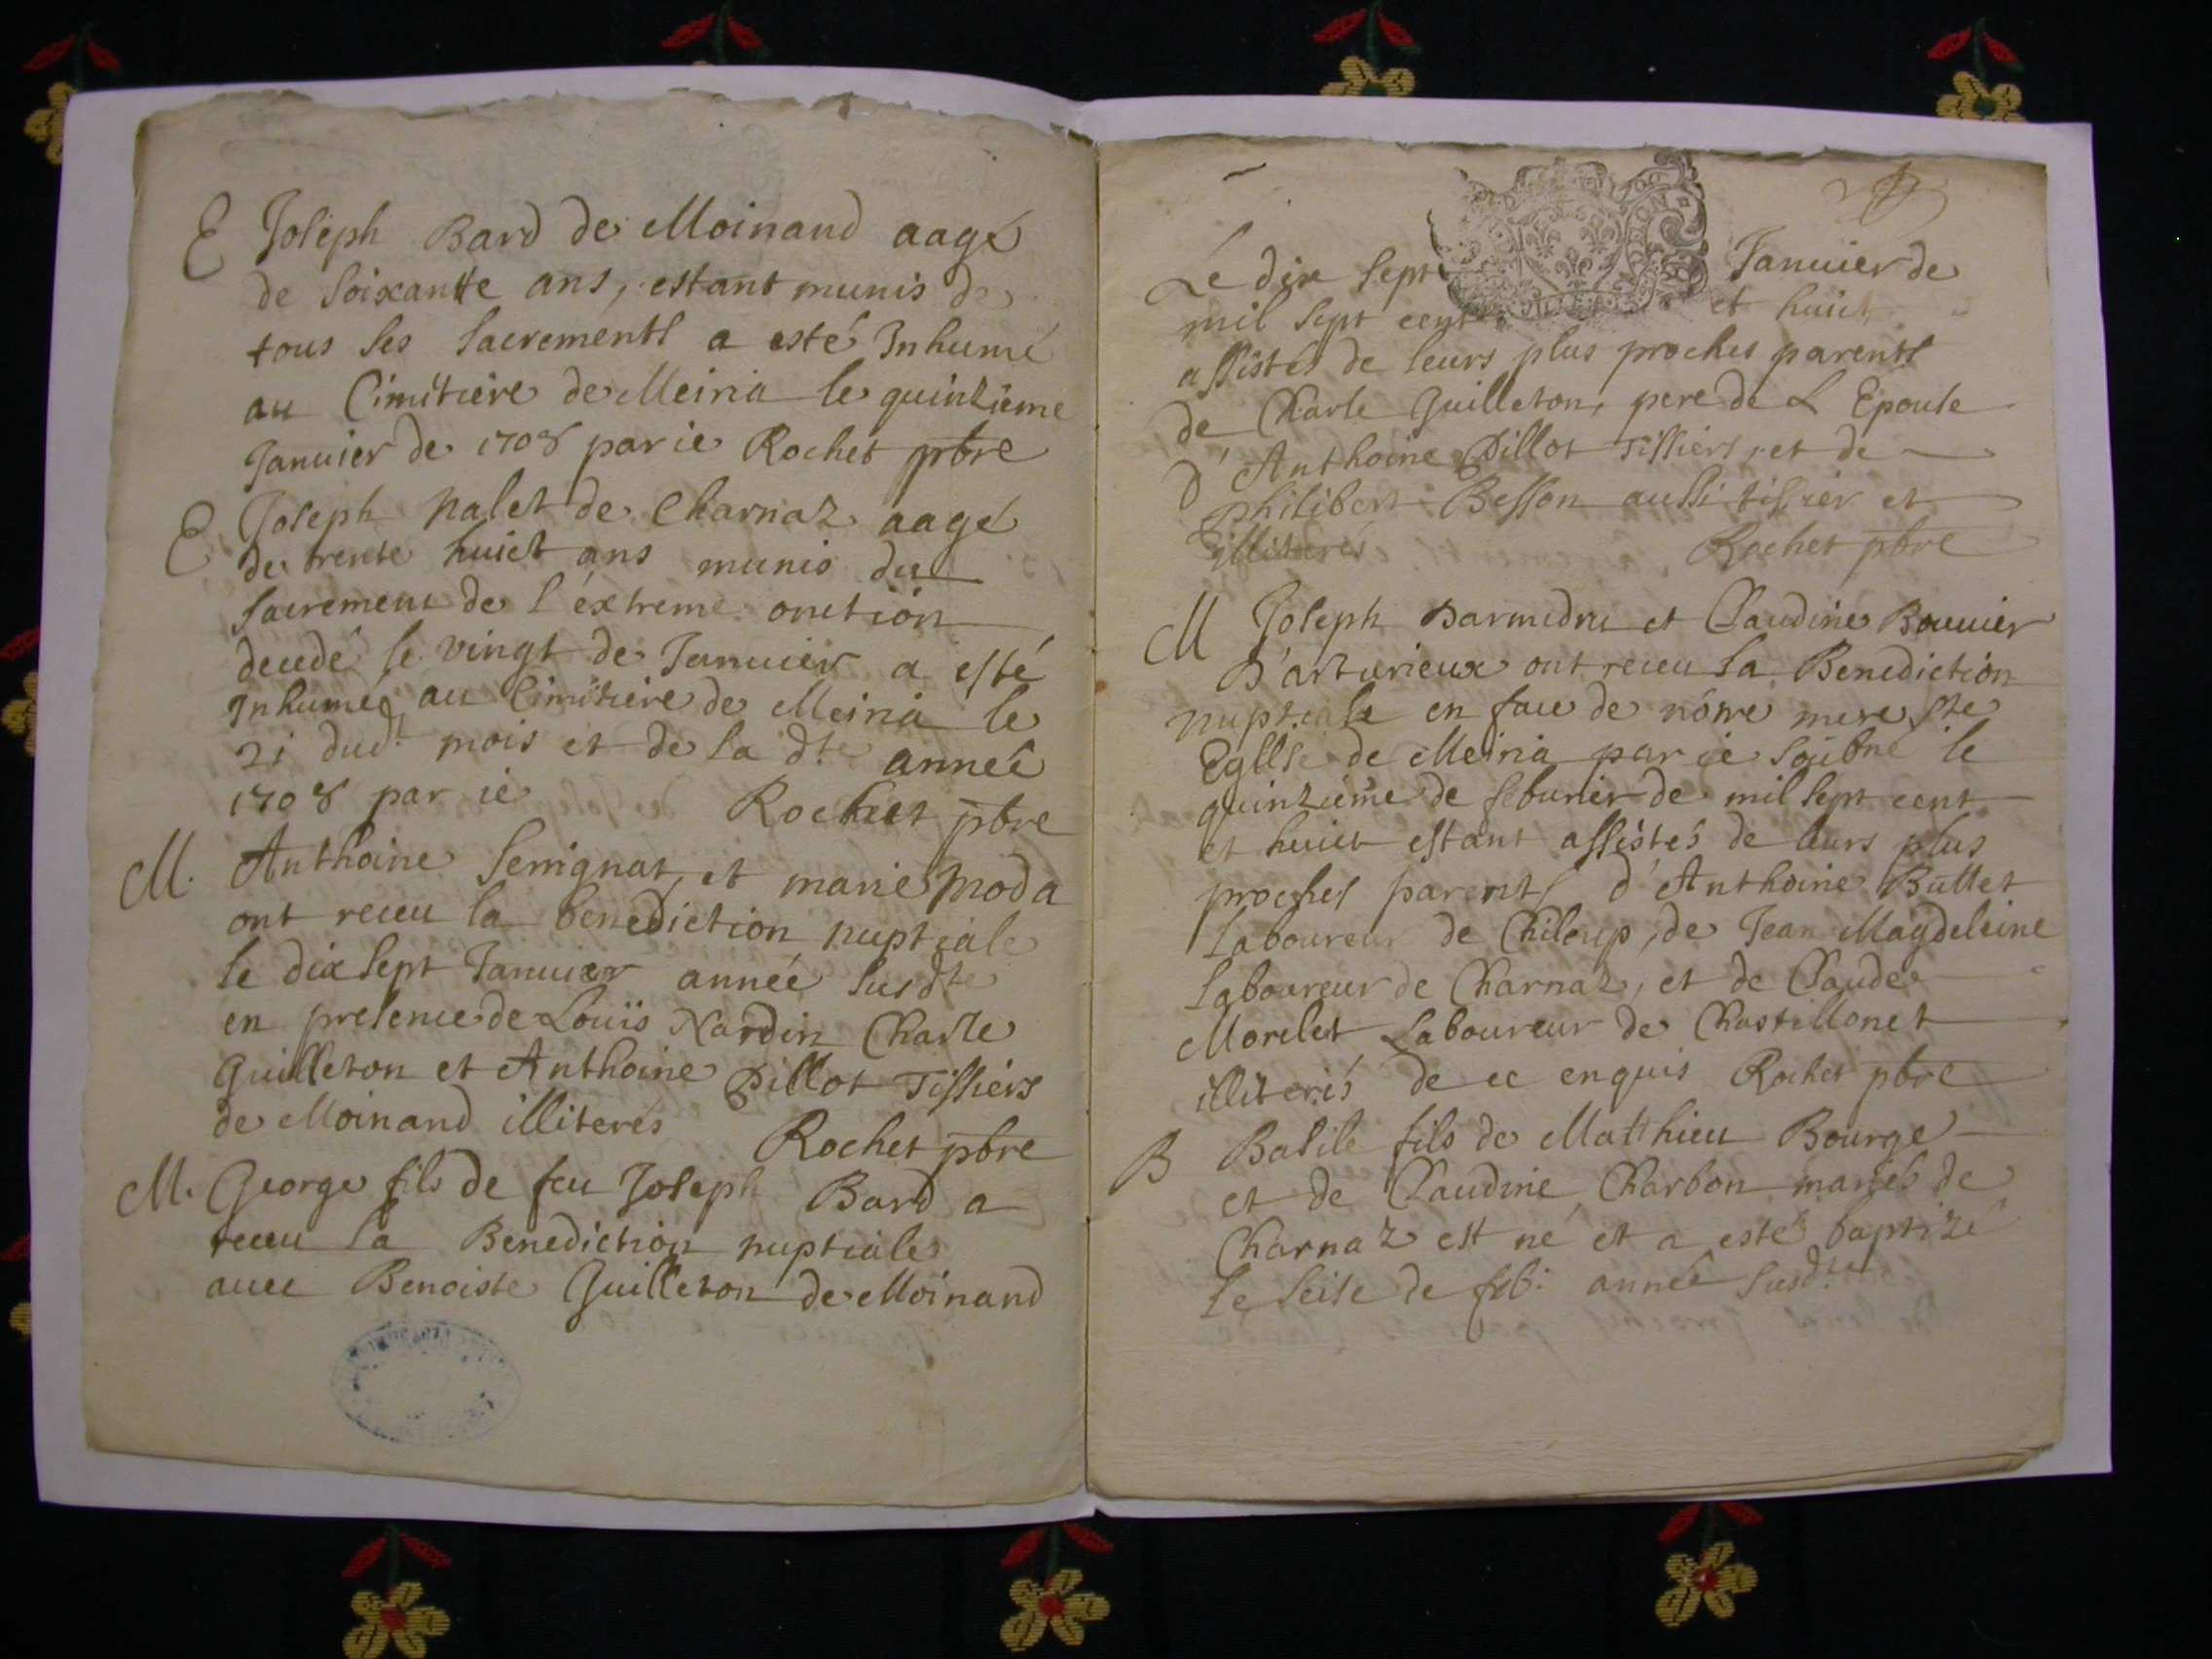 E Joseph Bard de Moinand aagé
de soixantte ans, estant munis de
tous ses sacrements a esté Inhumé
au Cimitière de Meiria le quinzième
Januier de 1708 par ie Rochet pbre
E Joseph palet de Charnaz aagé
de trente huict ans munis du
sacrement de l'éxtreme onction
decedé le vingt de Januier a esté
Inhumé au Cimitiere de Meiria le
21 dud.t mois et de la d.te année
1708 par ie Rochet pbre
M. Anthoine Serrignat, et marie moda
ont receu la benediction nuptiale
le dix sept Januier année susd.te
en presence de Louïs Nardin Charle
Guilleton et Anthoine Pillot Tissiers
de Moinand illiterés Rochet pbre
M. George fils de feu Joseph Bard a
receu la Benediction nuptiale
auec Benoiste Guilleton de Moinand
Le dix sept Januier de
mil sept cent et huict
assistés de leurs plus proches parents
de Charle Guilleton, pere de L'Epouse
d'Anthoine Pillot Tissiers, et de
philibert Besson aussi tissier et
illiterés Rochet pbre
M Joseph Darmidru et Claudine Bouuier
D'arturieux ont receu la Benediction
nuptiale en face de nôtre mere ste
Eglise de Meiria par ie soubné le
quinziéme de feburier de mil sept cent
et huict estant assistés de leurs plus
proches parents d'Anthoine Bullet
laboureur de Chiloup, de Jean Magdeleine
laboureur de Charnaz, et de Claude
Morelet Laboureur de Chastillonet
illiterés de ce enquis Rochet pbre
B Basile fils de Matthieu Bourge
et de Claudine Charbon mariés de
Charnaz est né et a esté baptizé
Le seise de feb: année susd.te